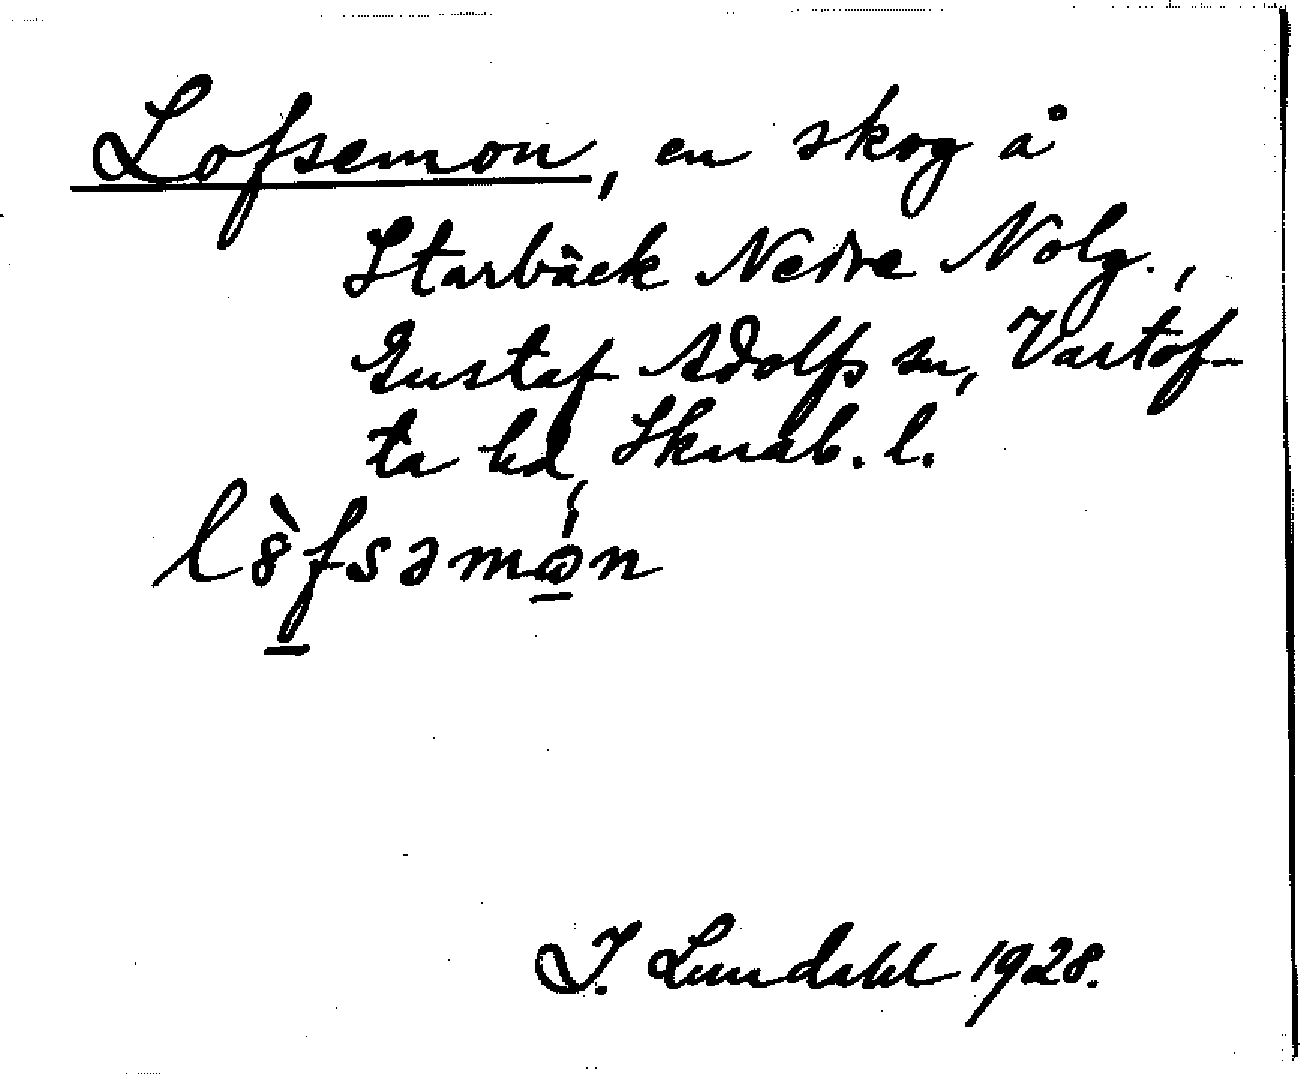 Lofsemon, en skog å
Starbäck Nedre Nolg.,
Gustaf Adolfs sn, Vartof-
ta hd, Skarab. l.
lò̀fsəmón
I. Lundahl 1928.